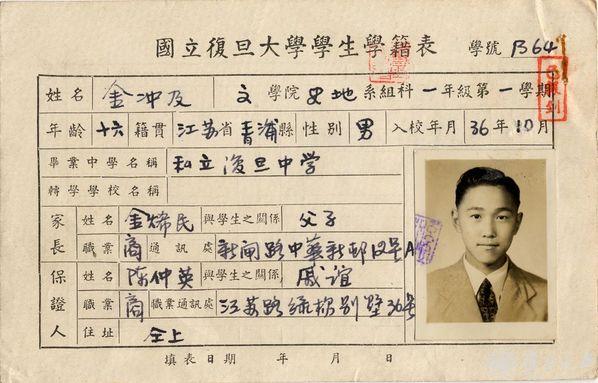 國立復旦大學學生學籍表 學號 B64
姓名 金冲及 文學院 史地系組科一年級第一學期
年齡 十六 籍貫 江苏省青浦縣 性別 男 入校年月 36年10月
畢業中學名稱 私立復旦中学
轉學學校名稱
家長 姓名 金烯民 與學生之關係 父子
職業 商 通訊處 新闸路中華新邨
保證人 姓名 陈仲英 與學生之關係 戚誼
職業 商 職業通訊處 江苏路绿杨别墅36号
住址 仝上
填表日期 年 月 日